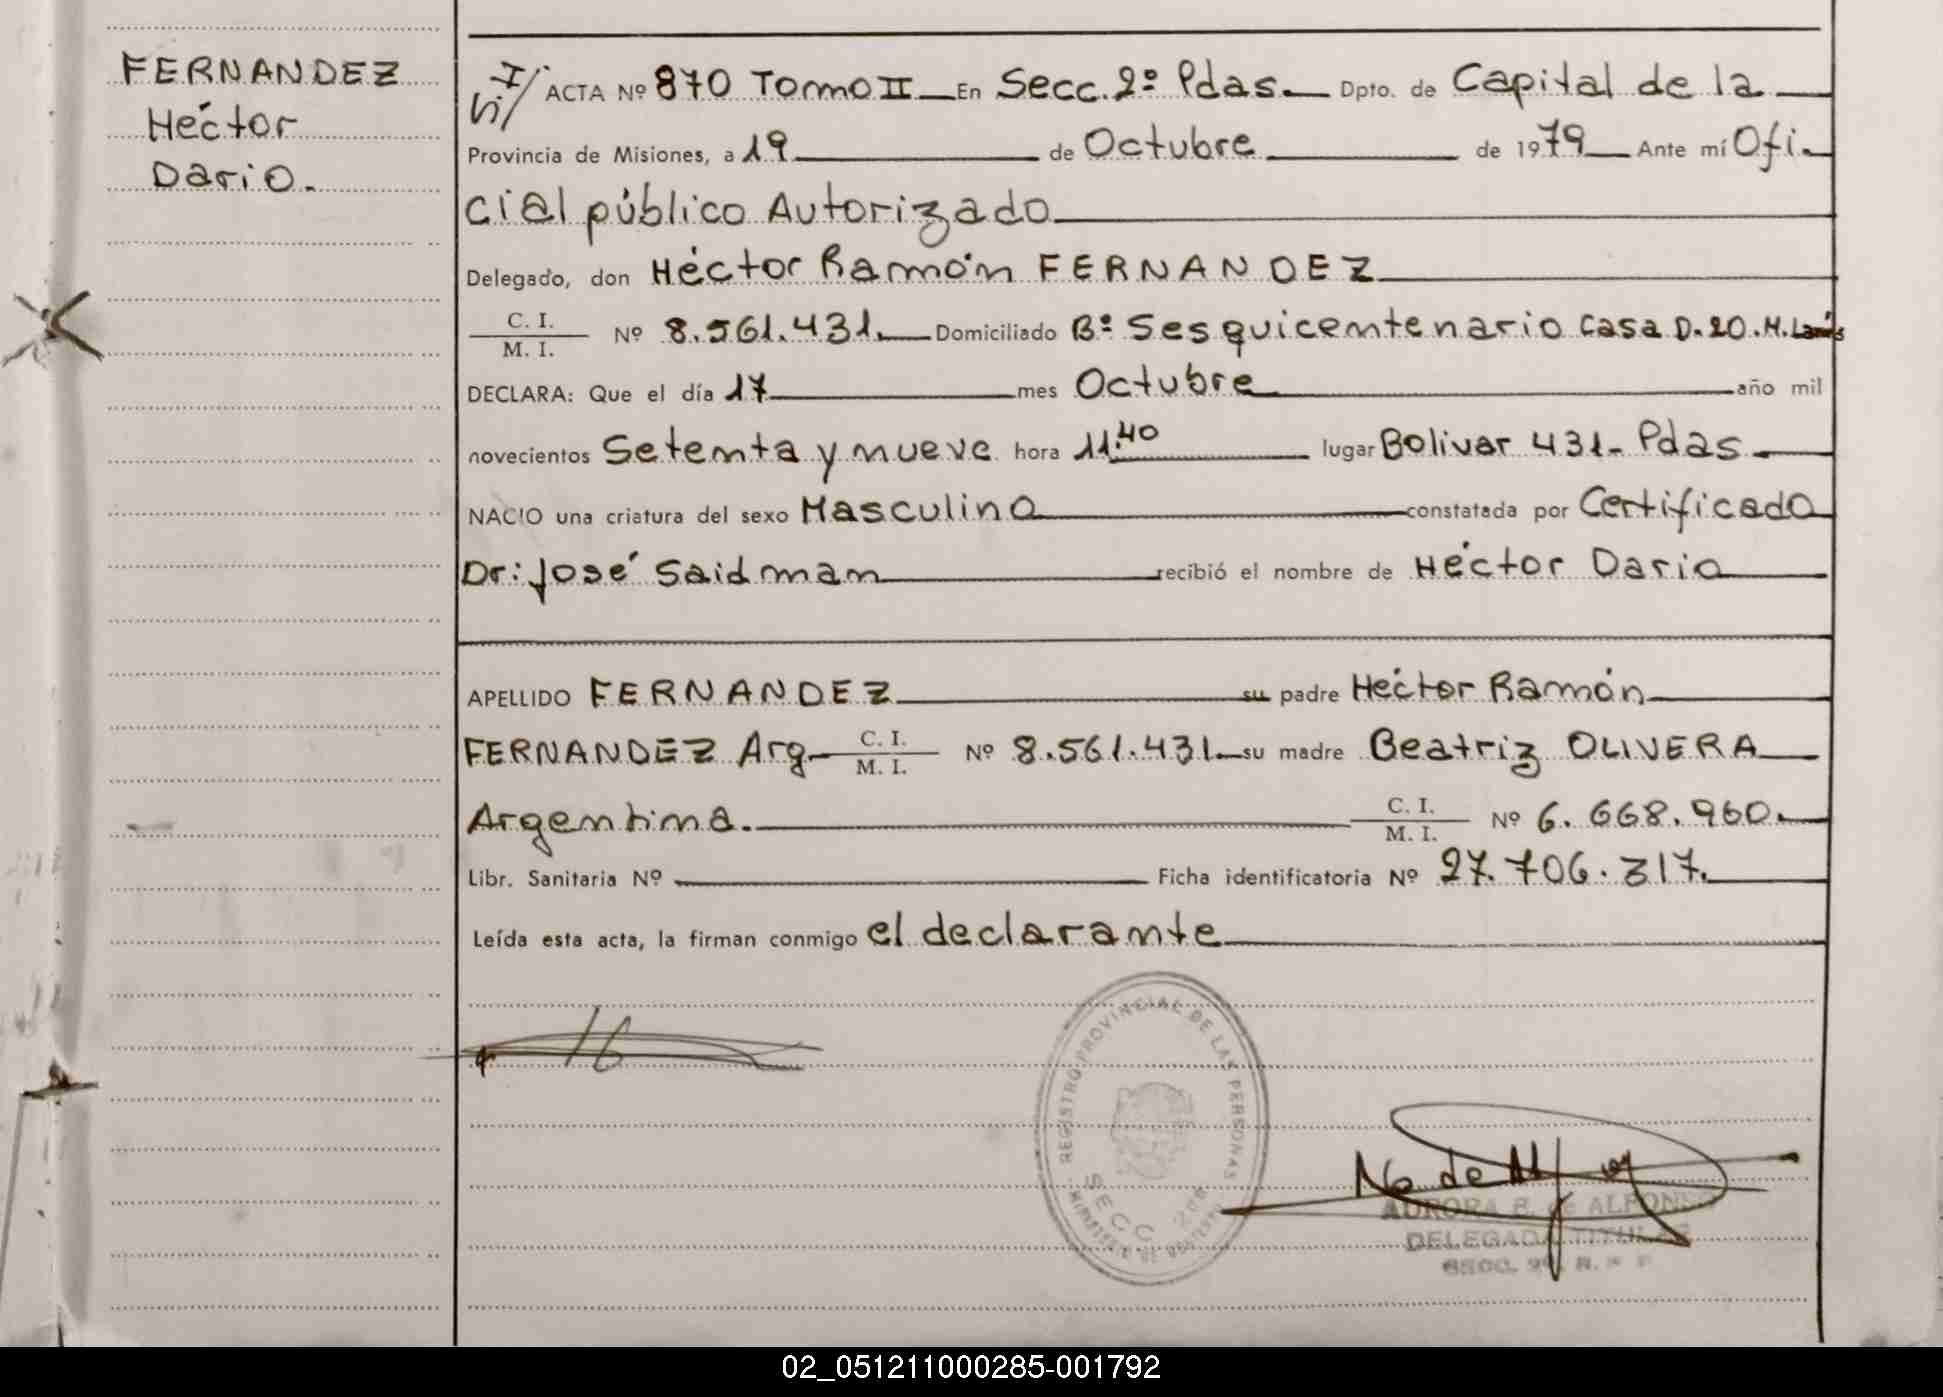 FERNANDEZ
Héctor
Dario.
ACTA Nº 870 Tomo II En Secc. 2º Pdas. Dpto. de Capital de la
Provincia de Misiones, a 19 de Octubre de 1979 Ante mí Ofi
cial público Autorizado
Delegado, don Héctor Ramón FERNANDEZ
C. I.
M. I. Nº 8.561.431. Domiciliado Bº Sesquicentenario Casa D.20.M.Lanús
DECLARA: Que el día 17 mes Octubre año mil
novecientos Setenta y nueve hora 11.40 lugar Bolivar 431- Pdas.
NACIO una criatura del sexo Masculino constatada por Certificado
Dr: José Saidman recibió el nombre de Héctor Dario
APELLIDO FERNANDEZ su padre Héctor Ramón
FERNANDEZ Arg. C. I. M. I. Nº 8.561.431. su madre Beatriz OLIVERA
Argentina. C. I. M. I. Nº 6.668.960.
Libr. Sanitaria Nº Ficha identificatoria Nº 27.706.317.
Leída esta acta, la firman conmigo el declarante
REGISTRO PROVINCIAL DE LAS PERSONAS
SECC.
AURORA B. de ALFONSO
DELEGADA TITULAR
SECC. 2ª R. P. P.
02_051211000285-001792